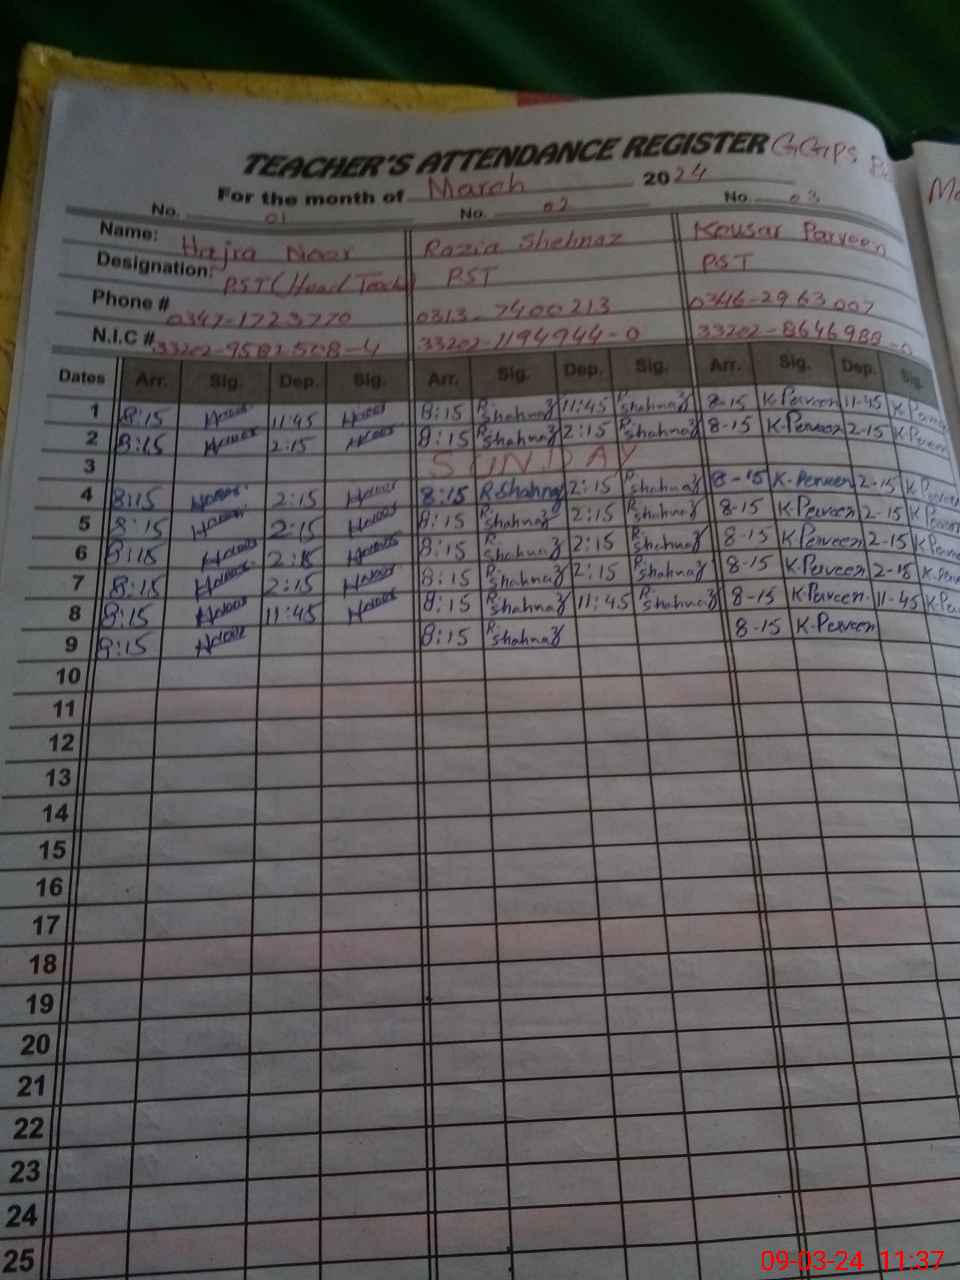 TEACHER'S ATTENDANCE REGISTER GGPS
For the month of March 2024
No. 01 No. 02 No. 03
Name: Hajra Noor Razia Shehnaz Kousar Parveen
Designation: PST (Head Teach) PST PST
Phone # 0347-1723770 0313-7400213 0346-2963007
N.I.C # 33202-1194944-0
Dates Arr. Sig. Dep. Sig. Arr. Sig. Dep. Sig. Arr. Sig. Dep. Sig.
1 8:15 11:45 8:15 R.Shahnaz 11:45 R.Shahnaz 8-15 K.Perveen 11-45
2 8:15 2:15 8:15 R.Shahnaz 2:15 R.Shahnaz 8-15 K.Perveen 2-15 K.Perveen
3 SUNDAY
4 8:15 2:15 8:15 R.Shahnaz 2:15 R.Shahnaz 8-15 K.Perveen 2-15
5 8:15 2:15 8:15 R.Shahnaz 2:15 R.Shahnaz 8-15 K.Perveen 2-15
6 8:15 2:15 8:15 R.Shahnaz 2:15 R.Shahnaz 8-15 K.Perveen 2-15
7 8:15 2:15 8:15 R.Shahnaz 2:15 R.Shahnaz 8-15 K.Perveen 2-15
8 8:15 11:45 8:15 R.Shahnaz 11:45 R.Shahnaz 8-15 K.Perveen 11-45
9 8:15 8:15 R.Shahnaz 8-15 K.Perveen
10
11
12
13
14
15
16
17
18
19
20
21
22
23
24
25
09-03-24 11:37